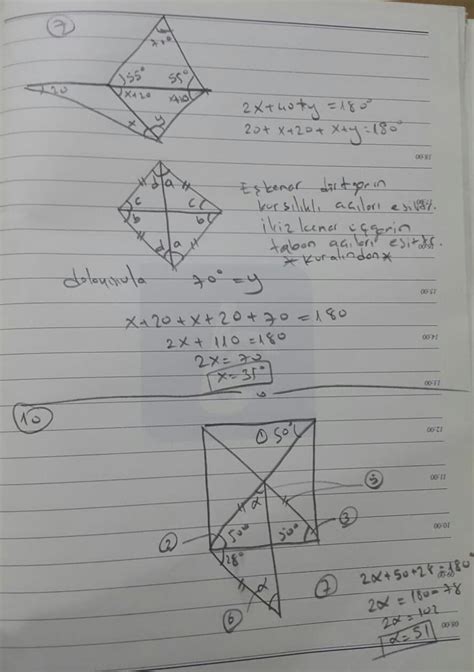 7
70°
55° 55°
20 x+20 140
x y
2x+40+y=180°
20+x+20+x+y=180°
d a
c c
b b
d a
Eşkenar dörtgenin
karşılıklı açıları eşittir.
ikizkenar üçgenin
taban açıları eşittir.
*kuralından*
dolayısıyla 70°=y
x+20+x+20+70=180
2x+110=180
2x=70
x=35°
10
① 50°
α ⑤
② 50° 50° ③
28°
α
⑥ ⑦
2α+50+28=180°
2α=180-78
2α=102
α=51
16:00
15:00
14:00
13:00
12:00
11:00
10:00
09:00
08:00